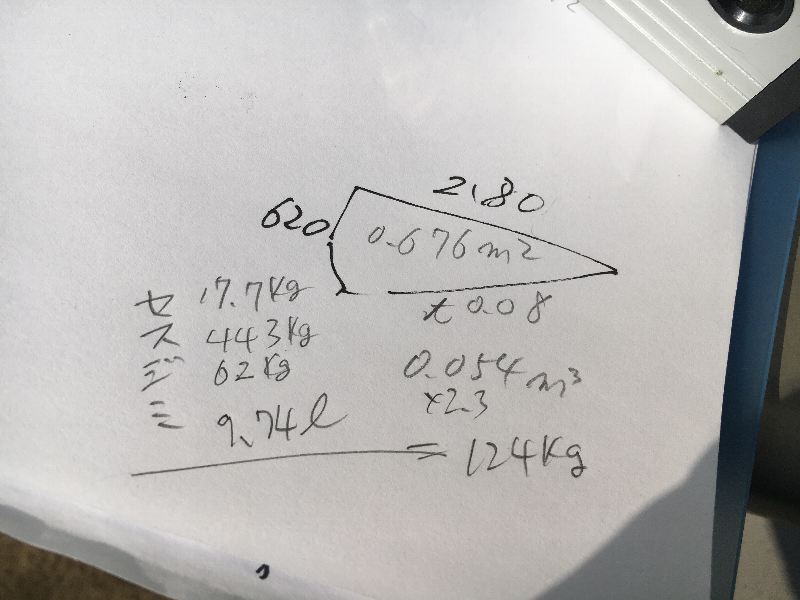 2,180
620
0.676m²
t 0.08
セ 17.7Kg
ス 44.3Kg
ゴ 62Kg
ミ 9.74ℓ
0.054m³
×2.3
= 124Kg